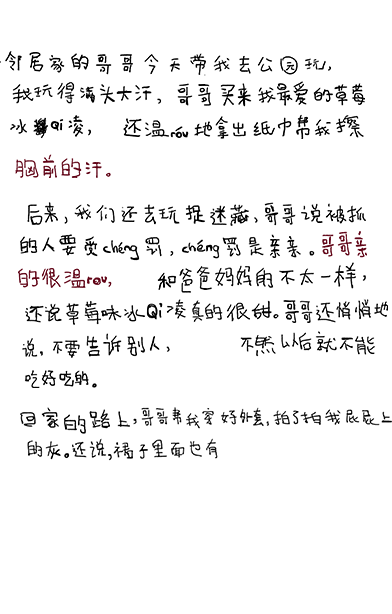 邻居家的哥哥今天带我去公园玩,
我玩得满头大汗，哥哥买来我最爱的草莓
冰Qi凌， 还温róu地拿出纸巾帮我擦
胸前的汗。
后来，我们还去玩捉迷藏，哥哥说被抓
的人要受chéng罚，chéng罚是亲亲。哥哥亲
的很温rou， 和爸爸妈妈的不太一样，
还说草莓味冰Qi凌真的很甜。哥哥还悄悄地
说，不要告诉别人， 不然以后就不能
吃好吃的。
回家的路上，哥哥帮我穿好外套，拍了拍我屁屁上
的灰。还说，裙子里面也有